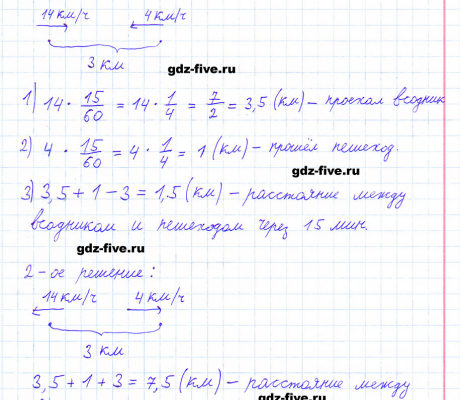 14 км/ч 4 км/ч
3 км
gdz-five.ru
1) 14 · 15/60 = 14 · 1/4 = 7/2 = 3,5 (км) – проехал всадник
2) 4 · 15/60 = 4 · 1/4 = 1 (км) – прошёл пешеход.
gdz-five.ru
3) 3,5 + 1 – 3 = 1,5 (км) – расстояние между
всадником и пешеходом через 15 мин.
gdz-five.ru
2-ое решение:
14 км/ч 4 км/ч
3 км
3,5 + 1 + 3 = 7,5 (км) – расстояние между
gdz-five.ru